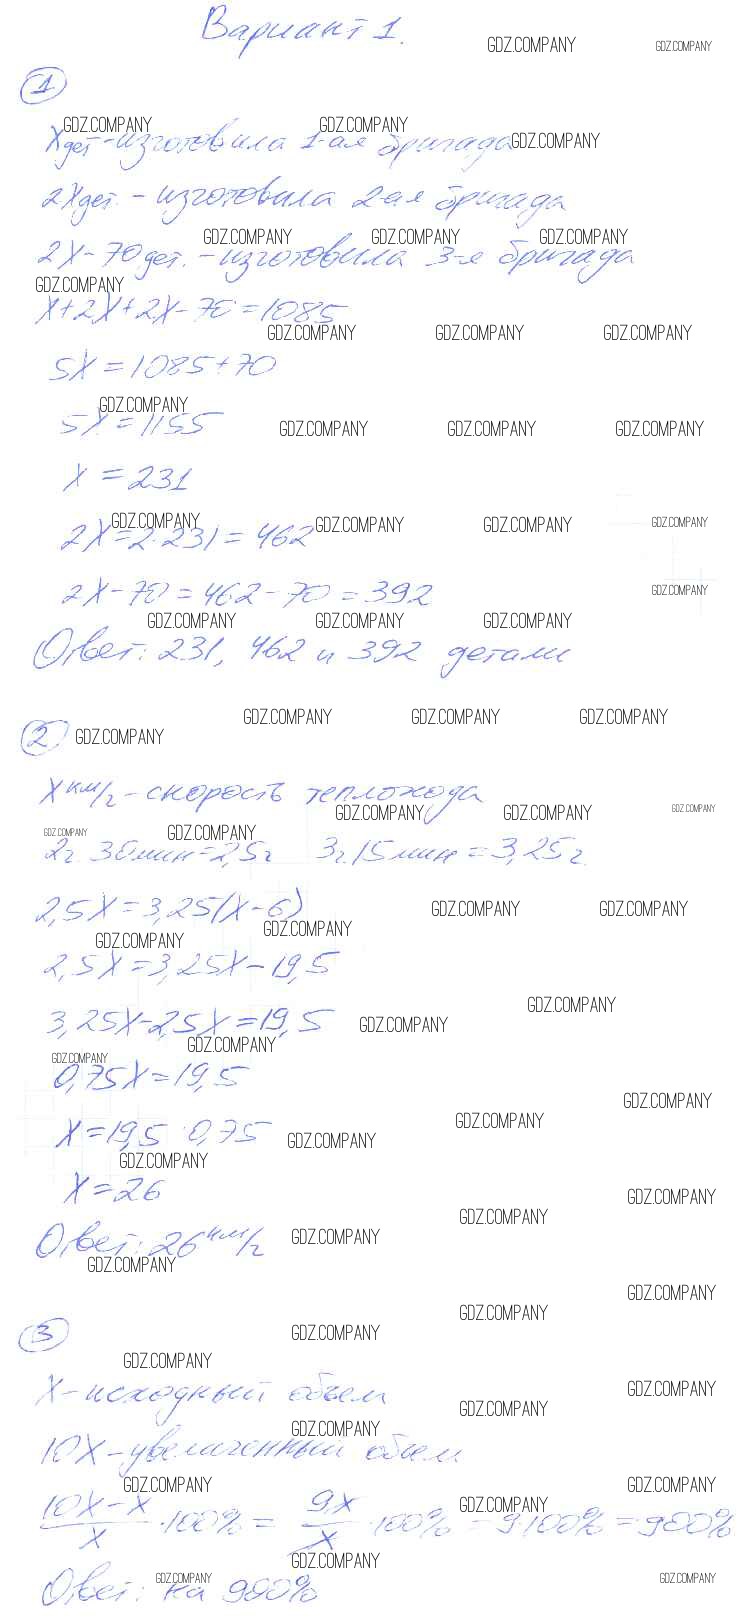 Вариант 1.
1
X дет - изготовила 1-ая бригада
2X дет. - изготовила 2-ая бригада
2X - 70 дет. - изготовила 3-я бригада
X + 2X + 2X - 70 = 1085
5X = 1085 + 70
5X = 1155
X = 231
2X = 2 · 231 = 462
2X - 70 = 462 - 70 = 392
Ответ: 231, 462 и 392 детали
2
X км/г - скорость теплохода
2г 30мин = 2,5г 3г 15мин = 3,25г.
2,5X = 3,25(X - 6)
2,5X = 3,25X - 19,5
3,25X - 2,5X = 19,5
0,75X = 19,5
X = 19,5 : 0,75
X = 26
Ответ: 26 км/г
3
X - исходный объем
10X - увеличенный объем
10X - X / X · 100% = 9X / X · 100% = 9 · 100% = 900%
Ответ: на 900%
GDZ.COMPANY